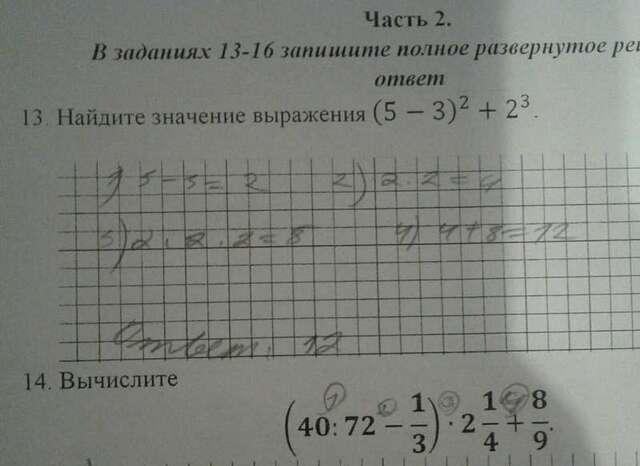 Часть 2.
В заданиях 13-16 запишите полное развернутое ре
ответ
13. Найдите значение выражения (5 − 3)² + 2³.
1) 5 − 3 = 2 2) 2 · 2 = 4
3) 2 · 2 · 2 = 8 4) 4 + 8 = 12
Ответ: 12
14. Вычислите
1 2 3 4
(40: 72 − 1/3) · 2 1/4 + 8/9.